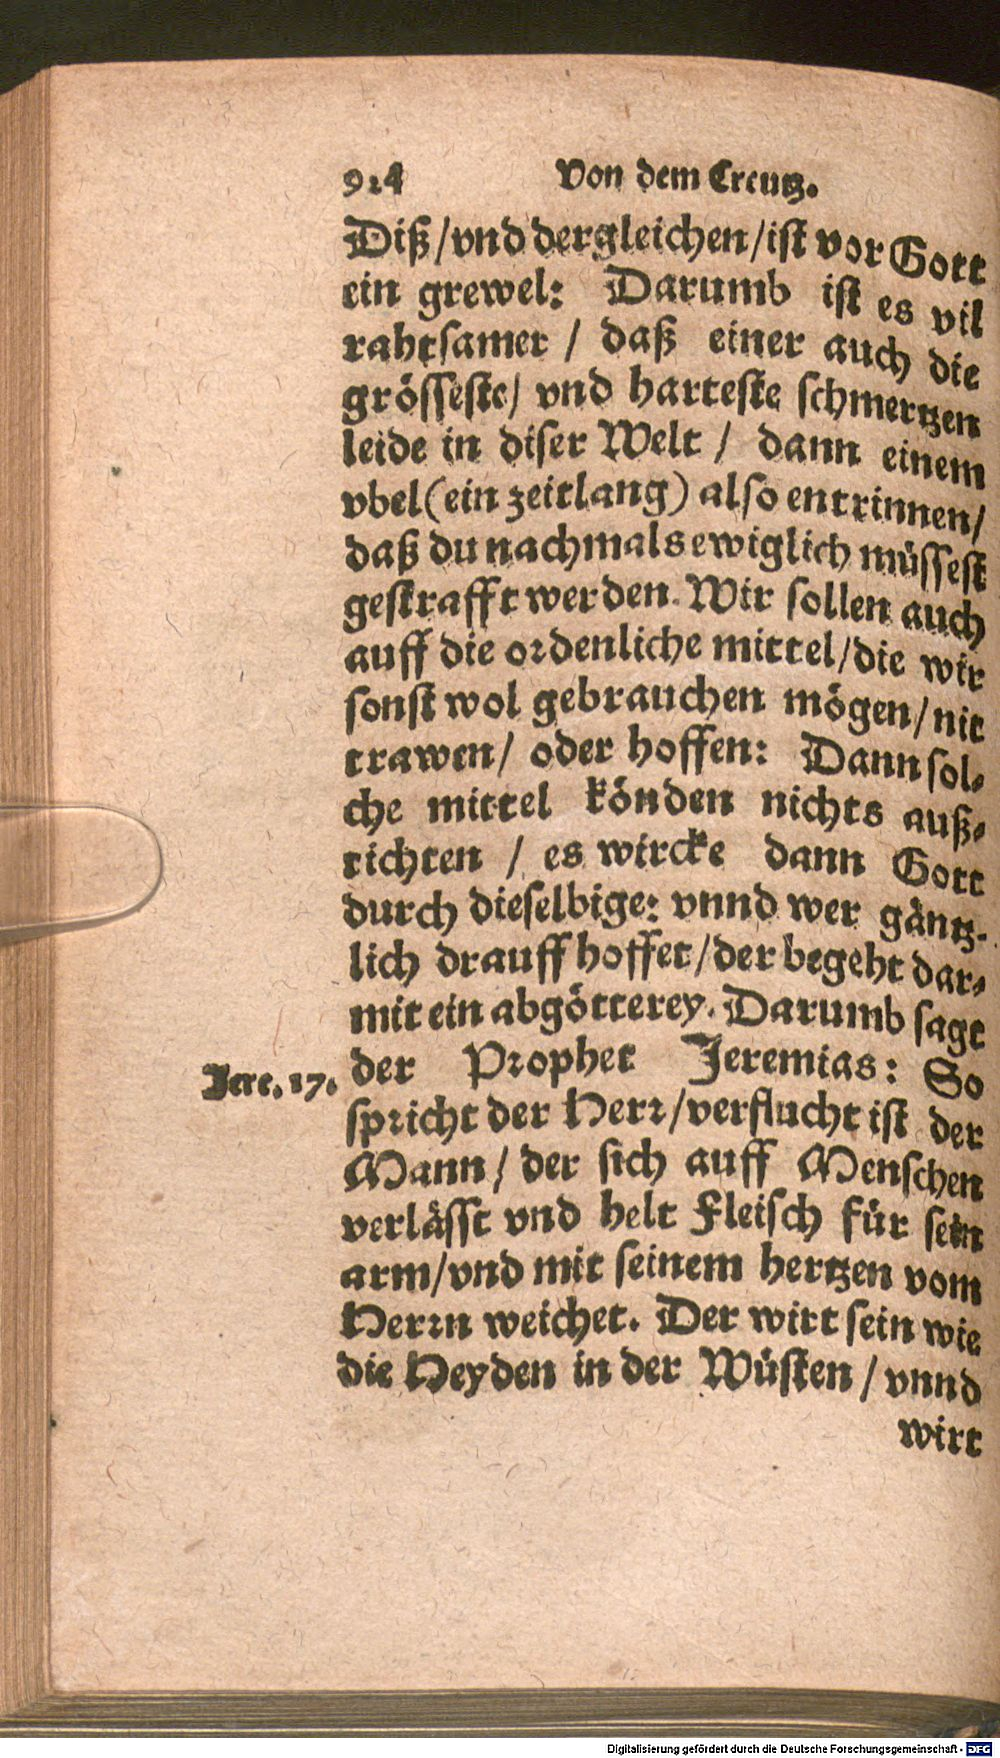 924 Von dem Creutz.
Diß/vnd dergleichen/ist vor Gott
ein grewel: Darumb ist es vil
rahtsamer / daß einer auch die
grösseste/ vnd harteste schmertzen
leide in diser Welt / dann einem
vbel (ein zeitlang) also entrinnen/
daß du nachmals ewiglich müssest
gestrafft werden. Wir sollen auch
auff die ordenliche mittel/die wir
sonst wol gebrauchen mögen/nit
trawen/ oder hoffen: Dann sol-
che mittel könden nichts auß-
richten / es wircke dann Gott
durch dieselbige: vnnd wer gäntz-
lich drauff hoffet/der begeht dar-
mit ein abgötterey. Darumb sagt
Jere. 17. der Prophet Jeremias: So
spricht der Herr/verflucht ist der
Mann/ der sich auff Menschen
verlässt vnd helt Fleisch für sein
arm/vnd mit seinem hertzen vom
Herrn weichet. Der wirt sein wie
die Heyden in der Wüsten / vnnd
wirt
Digitalisierung gefördert durch die Deutsche Forschungsgemeinschaft - DFG